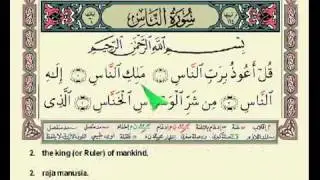 سُورَةُ النَّاسِ
بِسْمِ اللَّهِ الرَّحْمَٰنِ الرَّحِيمِ
قُلْ أَعُوذُ بِرَبِّ النَّاسِ ۝ مَلِكِ النَّاسِ ۝ إِلَٰهِ
النَّاسِ ۝ مِن شَرِّ الْوَسْوَاسِ الْخَنَّاسِ ۝ الَّذِي
2. the king (or Ruler) of mankind,
2. raja manusia.